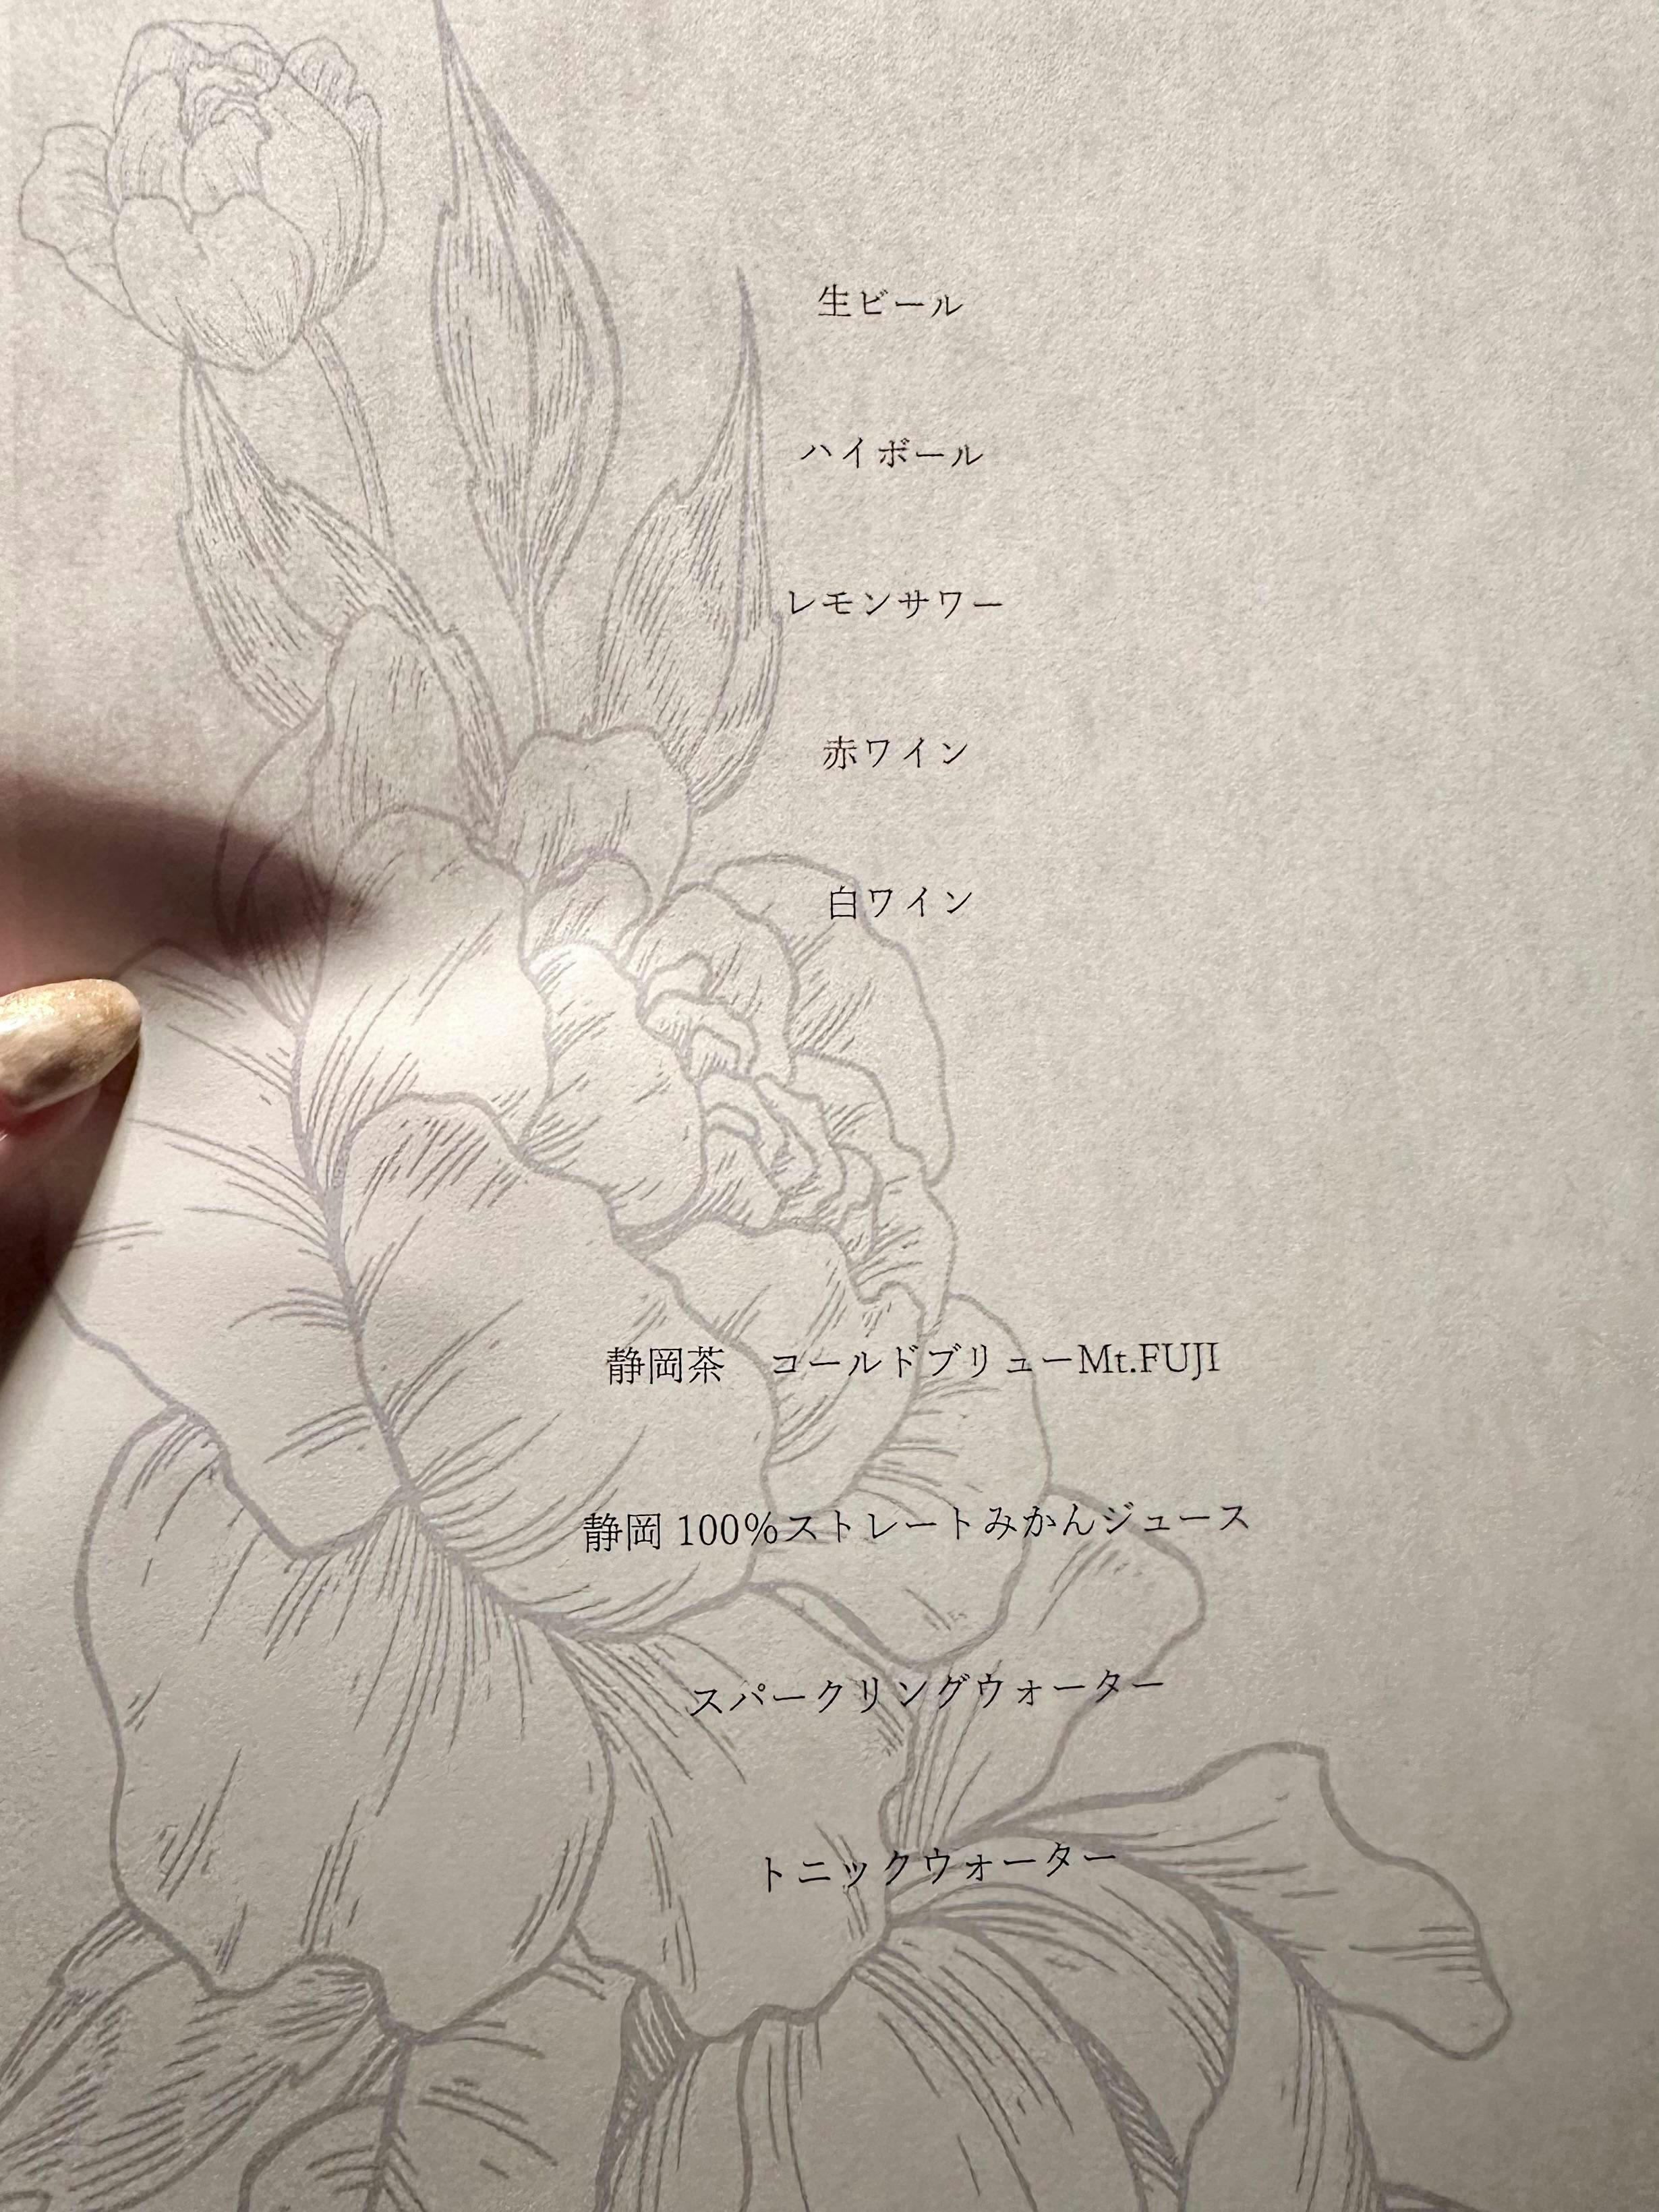 生ビール
ハイボール
レモンサワー
赤ワイン
白ワイン
静岡茶　コールドブリューMt.FUJI
静岡 100％ストレートみかんジュース
スパークリングウォーター
トニックウォーター